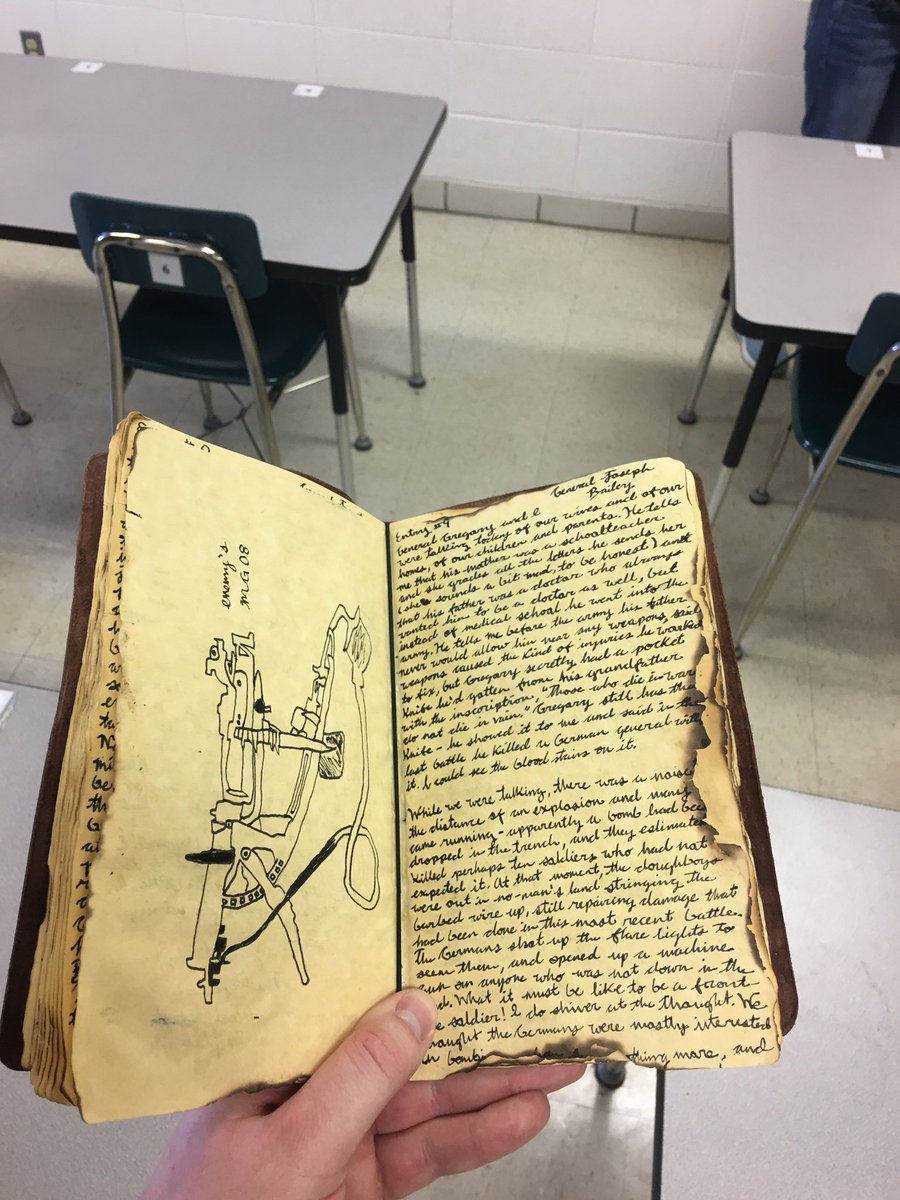 6
MG 08
General Joseph
Bailey
Entry #9
General Gregary and I
were talking today of our wives and of our
homes, of our children and parents. He tells
me that his mother was a schoolteacher
and she grades all the letters he sends her
(she sounds a bit mad, to be honest) and
that his father was a doctor who always
wanted him to be a doctor as well, but
instead of medical school he went into the
army. He tells me before the army his father
never would allow him near any weapons, said
weapons caused the kind of injuries he worked
to fix, but Gregary secretly had a pocket
knife he'd gotten from his grandfather
with the inscription, "Those who die in war
do not die in vain." Gregary still has the
knife - he showed it to me and said in the
last battle he killed a German general with
it. I could see the blood stains on it.
While we were talking, there was a noise
the distance of an explosion and many
came running - apparently a bomb had
dropped in the trench, and they estimated
killed perhaps ten soldiers who had not
expected it. At that moment, the doughboys
were out in no-man's land stringing the
barbed wire up, still repairing damage that
had been done in this most recent battle.
The Germans shot up the flare lights to
seem them, and opened up a machine
gun on anyone who was not down in the
What it must be like to be a front
soldier! I do shiver at the thought. We
thought the Germans were mostly interested
more, and